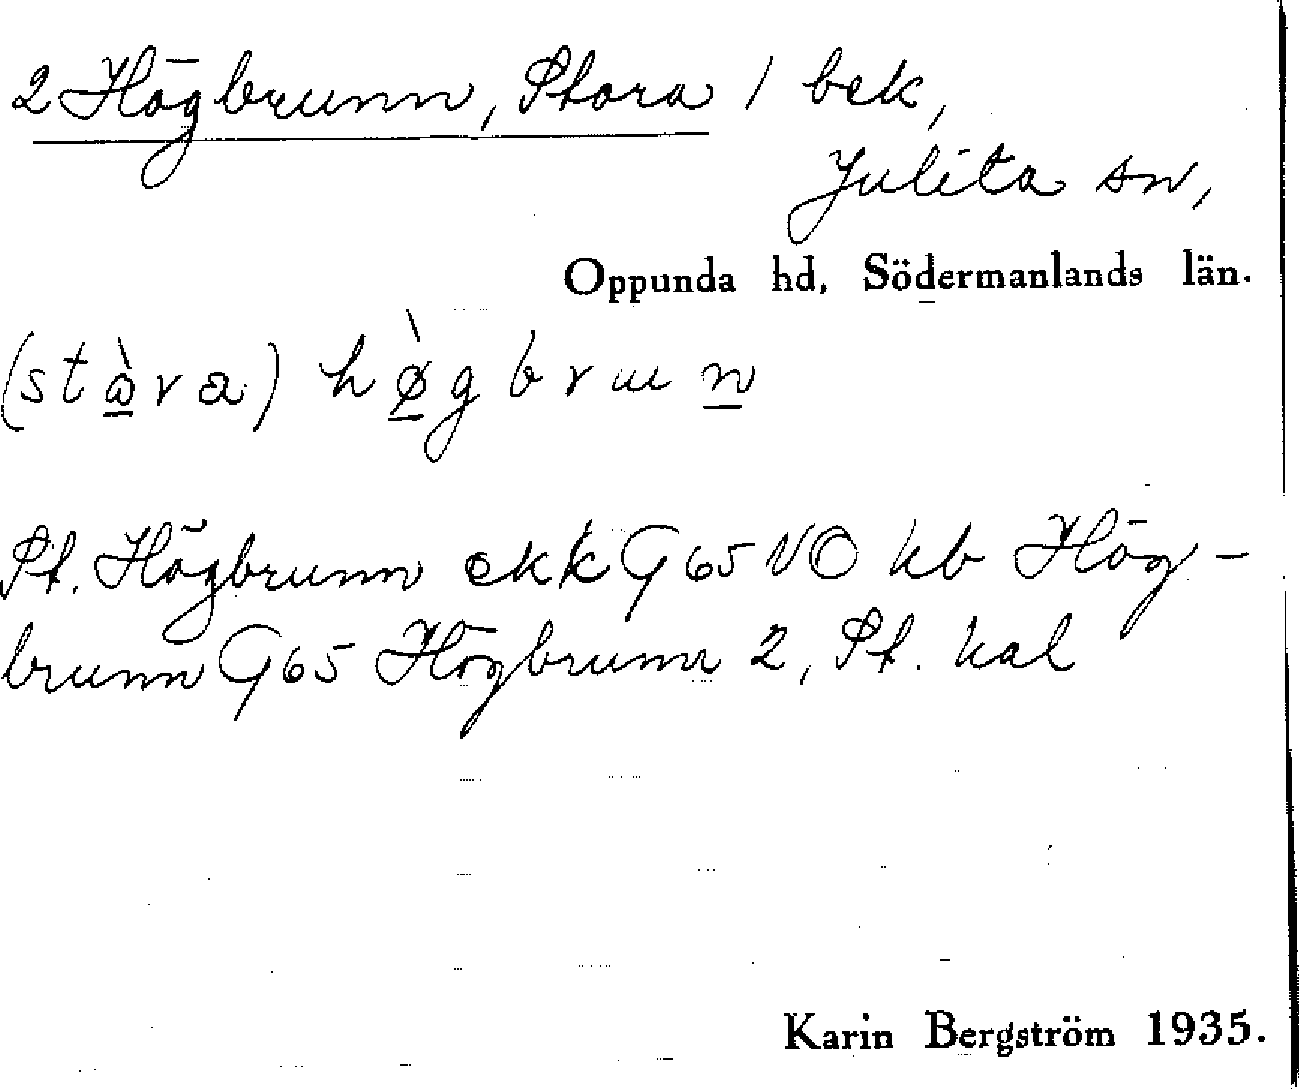 2 Högbrunn, Stora / bek,
Julita sn,
Oppunda hd, Södermanlands län.
(stòra) hø̀gbrun
St. Högbrunn ekk G65 NO kb Hög-
brunn G65 Högbrunn 2, St. kal
Karin Bergström 1935.